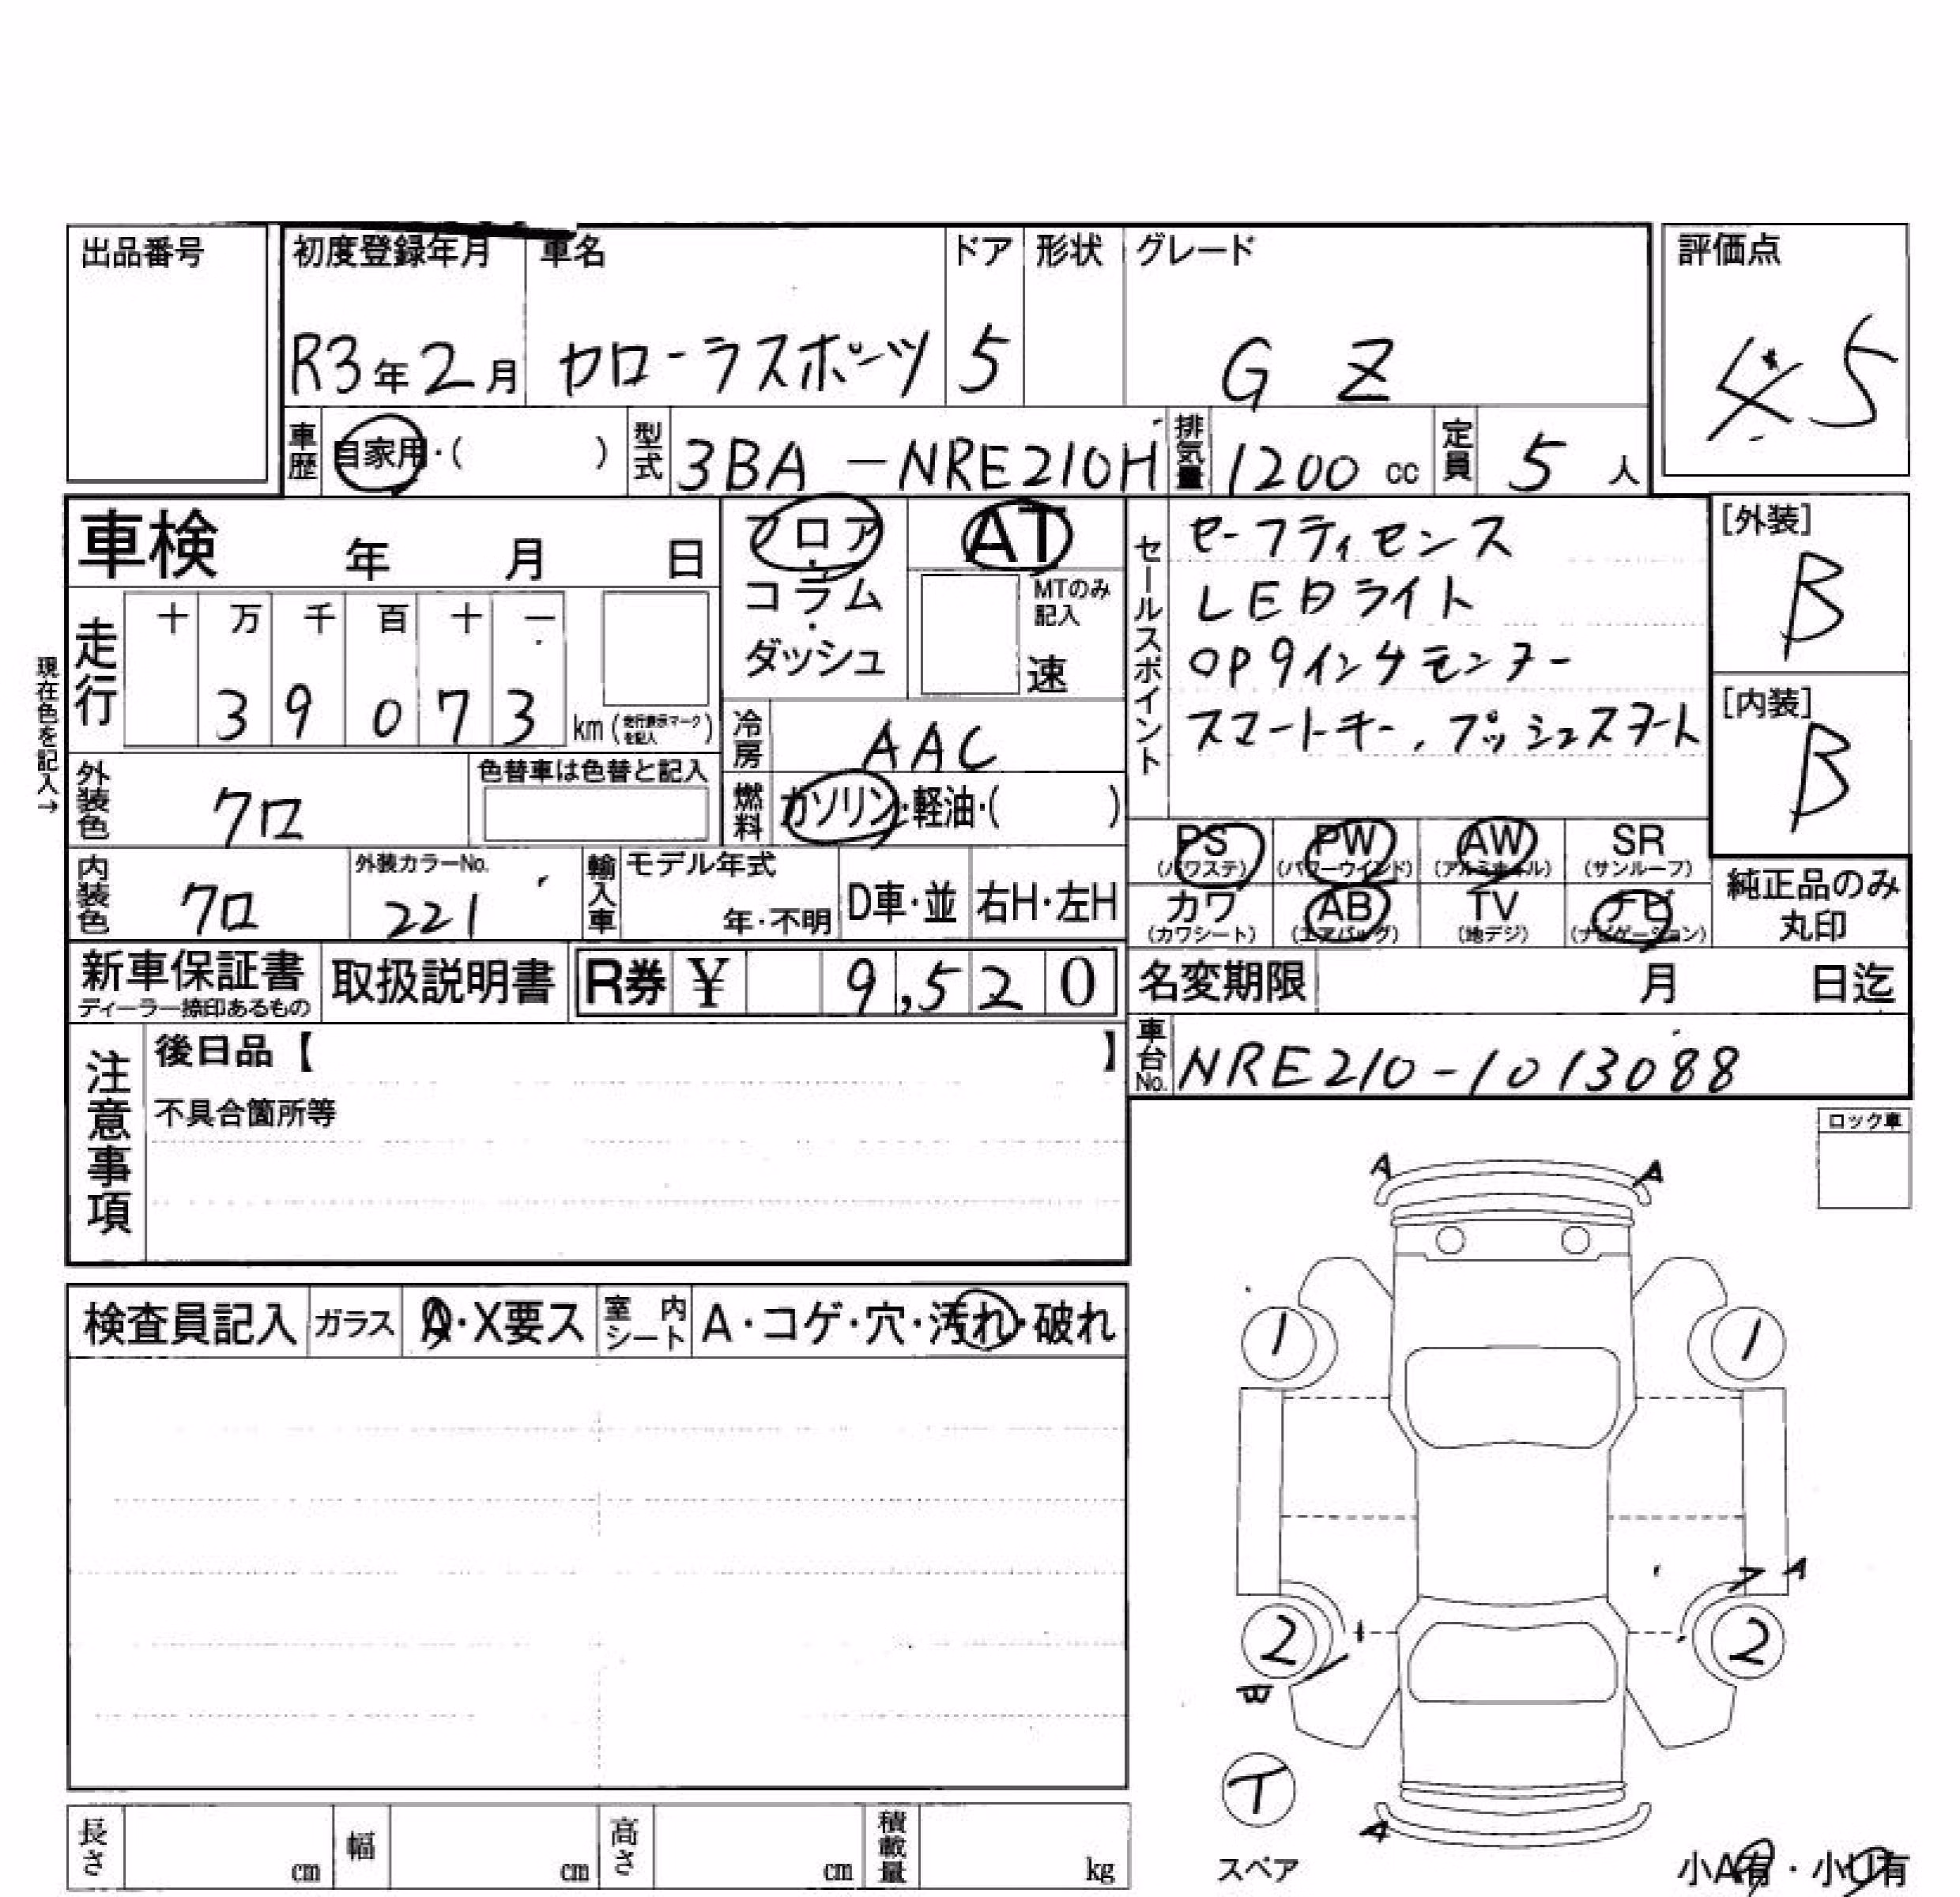 出品番号
初度登録年月 車名 ドア 形状 グレード 評価点
R3年2月 カローラスポーツ 5 G Z 4.5
車歴 自家用・( ) 型式 3BA-NRE210H 排気量 1200cc 定員 5人
車検 年 月 日
フロア・コラム・ダッシュ
AT
MTのみ記入
速
セールスポイント
セーフティセンス
LEDライト
OP9インチモニター
スマートキー,プッシュスタート
[外装]
B
[内装]
B
現在色を記入→
走行 十 万 千 百 十 一
3 9 0 7 3 km (走行表示マークを記入)
冷房 AAC
外装色 クロ 色替車は色替と記入
燃料 ガソリン・軽油・( )
内装色 クロ 外装カラーNo. 221 輸入車 モデル年式 年・不明 D車・並 右H・左H
PS (パワステ) PW (パワーウインド) AW (アルミホイル) SR (サンルーフ)
カワ (カワシート) AB (エアバッグ) TV (地デジ) ナビ (ナビゲーション)
純正品のみ丸印
新車保証書 ディーラー捺印あるもの 取扱説明書 R券 ¥ 9,520
名変期限 月 日迄
車台No. NRE210-1013088
注意事項
後日品【 】
不具合箇所等
ロック車
検査員記入 ガラス A・X要ス 室内シート A・コゲ・穴・汚れ・破れ
A A
1 1
A
2 2
B
T
A
スペア
小A有・小U有
長さ cm 幅 cm 高さ cm 積載量 kg